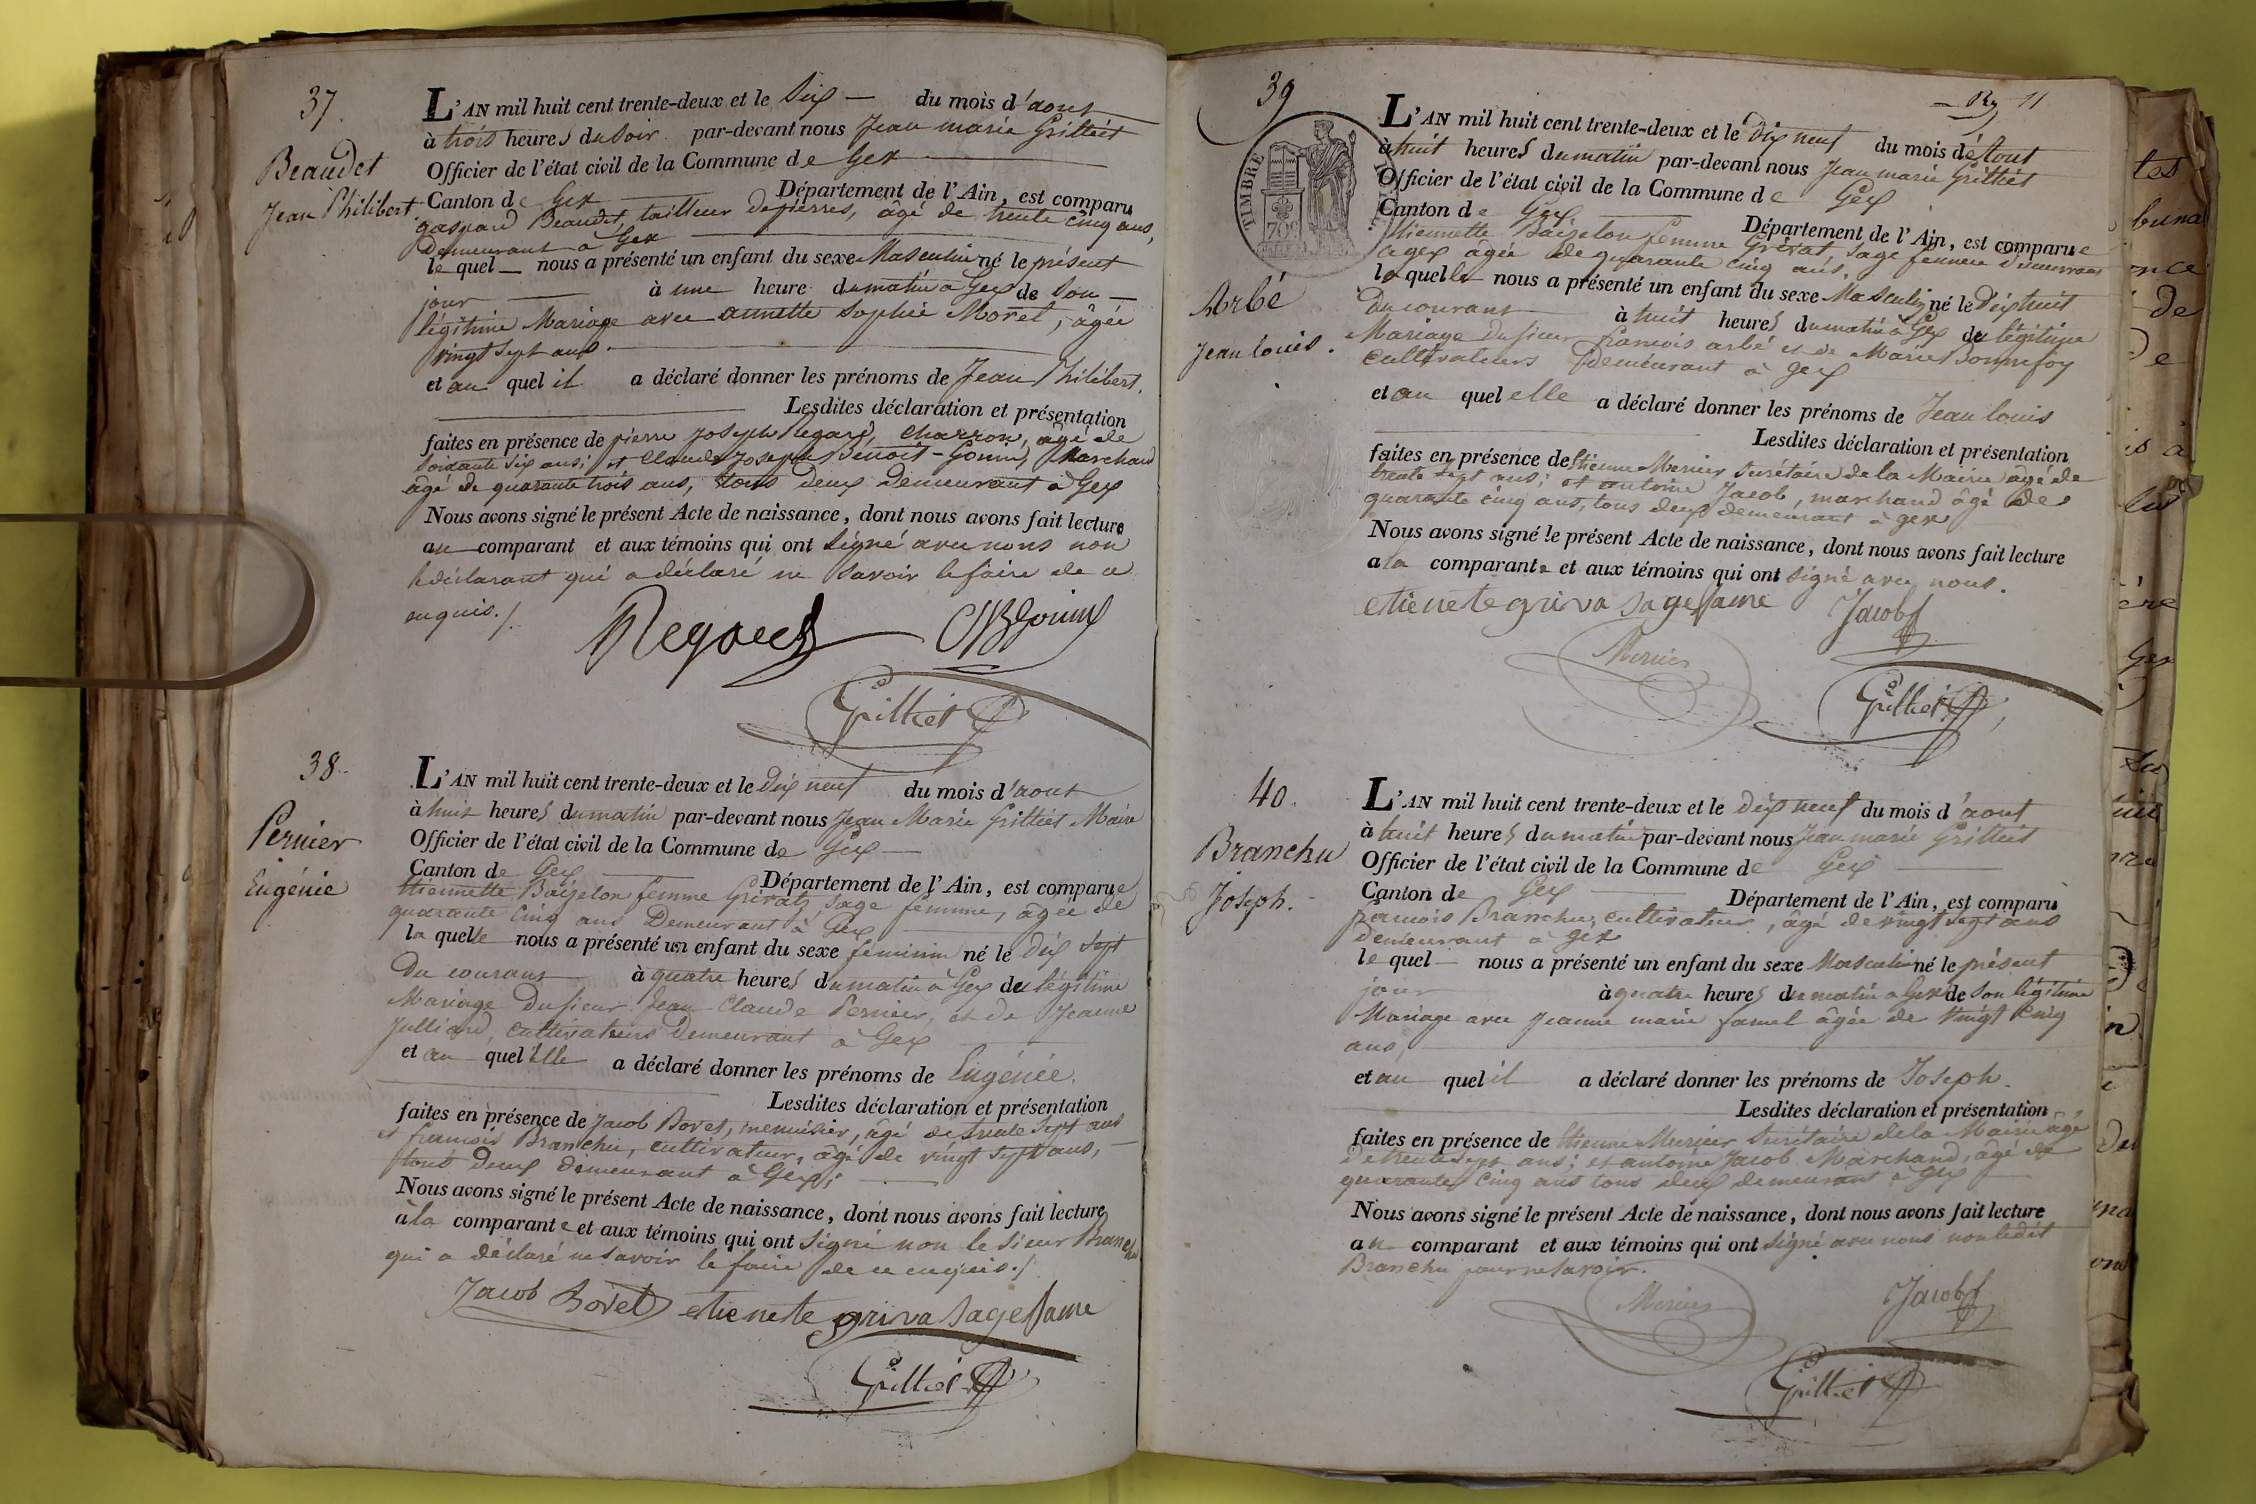 37.
Beaudet
Jean Philibert
L'AN mil huit cent trente-deux et le Six — du mois d'aout
à trois heures du soir par-devant nous Jean marie Grilliet
Officier de l'état civil de la Commune de Gex
Canton de Gex Département de l'Ain, est comparu
gaspard Beaudet, tailleur de pierres, âgé de trente cinq ans,
Demeurant à Gex
le quel — nous a présenté un enfant du sexe Masculin né le présent
jour à une heure du matin à Gex de Son —
légitime Mariage avec annette Sophie Moret, âgée
vingt Sept ans.
et au quel il a déclaré donner les prénoms de Jean Philibert.
Lesdites déclaration et présentation
faites en présence de pierre Joseph Regard, Charron, âgé de
Soixante Six ans; et Claude Joseph Benoit-Gonin, Marchand
âgé de quarante trois ans, tous Deux Demeurant à Gex
Nous avons signé le présent Acte de naissance, dont nous avons fait lecture
au comparant et aux témoins qui ont Signé avec nous non
le déclarant qui a déclaré ne Savoir le faire de ce
enquis./.
Regard
Grilliet
38.
Pernier
Eugénie
L'AN mil huit cent trente-deux et le Dix neuf du mois d'aout
à huit heures du matin par-devant nous Jean Marie Grilliet Maire
Officier de l'état civil de la Commune de Gex —
Canton de Gex Département de l'Ain, est comparue
Etiennette Baizelon femme Grivat, Sage femme, âgée de
quarante Cinq ans Demeurant à Gex
la quelle nous a présenté un enfant du sexe féminin né le Dix Sept
Du courant à quatre heures du matin à Gex du légitime
Mariage Du Sieur Jean Claude Pernier, et de Jeanne
Julliard, cultivateurs Demeurant à Gex
et au quel Elle a déclaré donner les prénoms de Eugénie.
Lesdites déclaration et présentation
faites en présence de Jacob Bovet, menuisier, âgé de trente Sept ans
et francois Branchu, cultivateur, âgé de vingt Sept ans,
tous Deux demeurant à Gex;
Nous avons signé le présent Acte de naissance, dont nous avons fait lecture
à la comparante et aux témoins qui ont Signé non le Sieur Branchu
qui a déclaré ne Savoir le faire de ce enquis./.
Jacob Bovet etienete griva Sagefame
Grilliet
39
11
L'AN mil huit cent trente-deux et le Dix neuf du mois d'aout
à huit heures du matin par-devant nous Jean marie Grilliet
TIMBRE
70c
Officier de l'état civil de la Commune de Gex
Canton de Gex Département de l'Ain, est comparue
Etiennette Baizelon femme Grivat, Sage femme Demeurant
à gex âgée de quarante cinq ans.
Arbé
Jean louis.
la quelle nous a présenté un enfant du sexe Masculin né le Dix huit
Du courant à huit heures du matin à Gex du légitime
Mariage du Sieur francois arbé et de Marie Bonnefoy
Cultivateurs Demeurant à gex
et au quel elle a déclaré donner les prénoms de Jean louis
Lesdites déclaration et présentation
faites en présence de Etienne Mercier Secrétaire de la Mairie âgé de
trente Sept ans; et antoine Jacob, marchand âgé de
quarante cinq ans, tous deux demeurant à gex
Nous avons signé le présent Acte de naissance, dont nous avons fait lecture
a la comparante et aux témoins qui ont signé avec nous.
etienete griva Sagefame Jacob
Mercier
Grilliet
40.
Branchu
Joseph.
L'AN mil huit cent trente-deux et le dix neuf du mois d'aout
à huit heures du matin par-devant nous Jean marie Grilliet
Officier de l'état civil de la Commune de Gex
Canton de Gex Département de l'Ain, est comparu
francois Branchu, cultivateur, âgé de vingt Sept ans
demeurant à gex
le quel — nous a présenté un enfant du sexe Masculin né le présent
jour à quatre heures du matin a Gex de Son légitime
Mariage avec Jeanne marie famel âgée de Vingt Cinq
ans,
et au quel il a déclaré donner les prénoms de Joseph.
Lesdites déclaration et présentation
faites en présence de Etienne Mercier Secrétaire de la Mairie âgé
De trente Sept ans; et antoine Jacob Marchand, âgé de
quarante Cinq ans tous deux demeurant à Gex
Nous avons signé le présent Acte de naissance, dont nous avons fait lecture
au comparant et aux témoins qui ont signé avec nous non ledit
Branchu pour ne Savoir.
Mercier Jacob
Grilliet